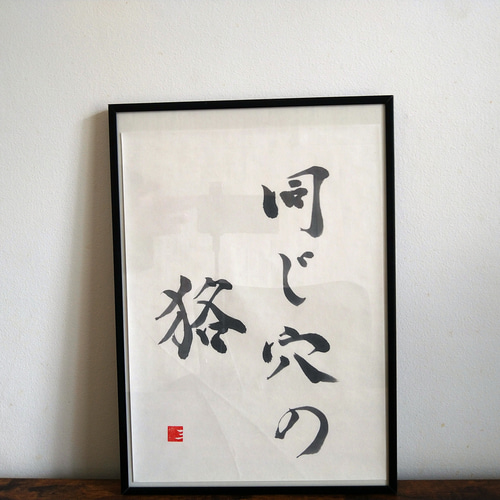 同じ穴の
狢